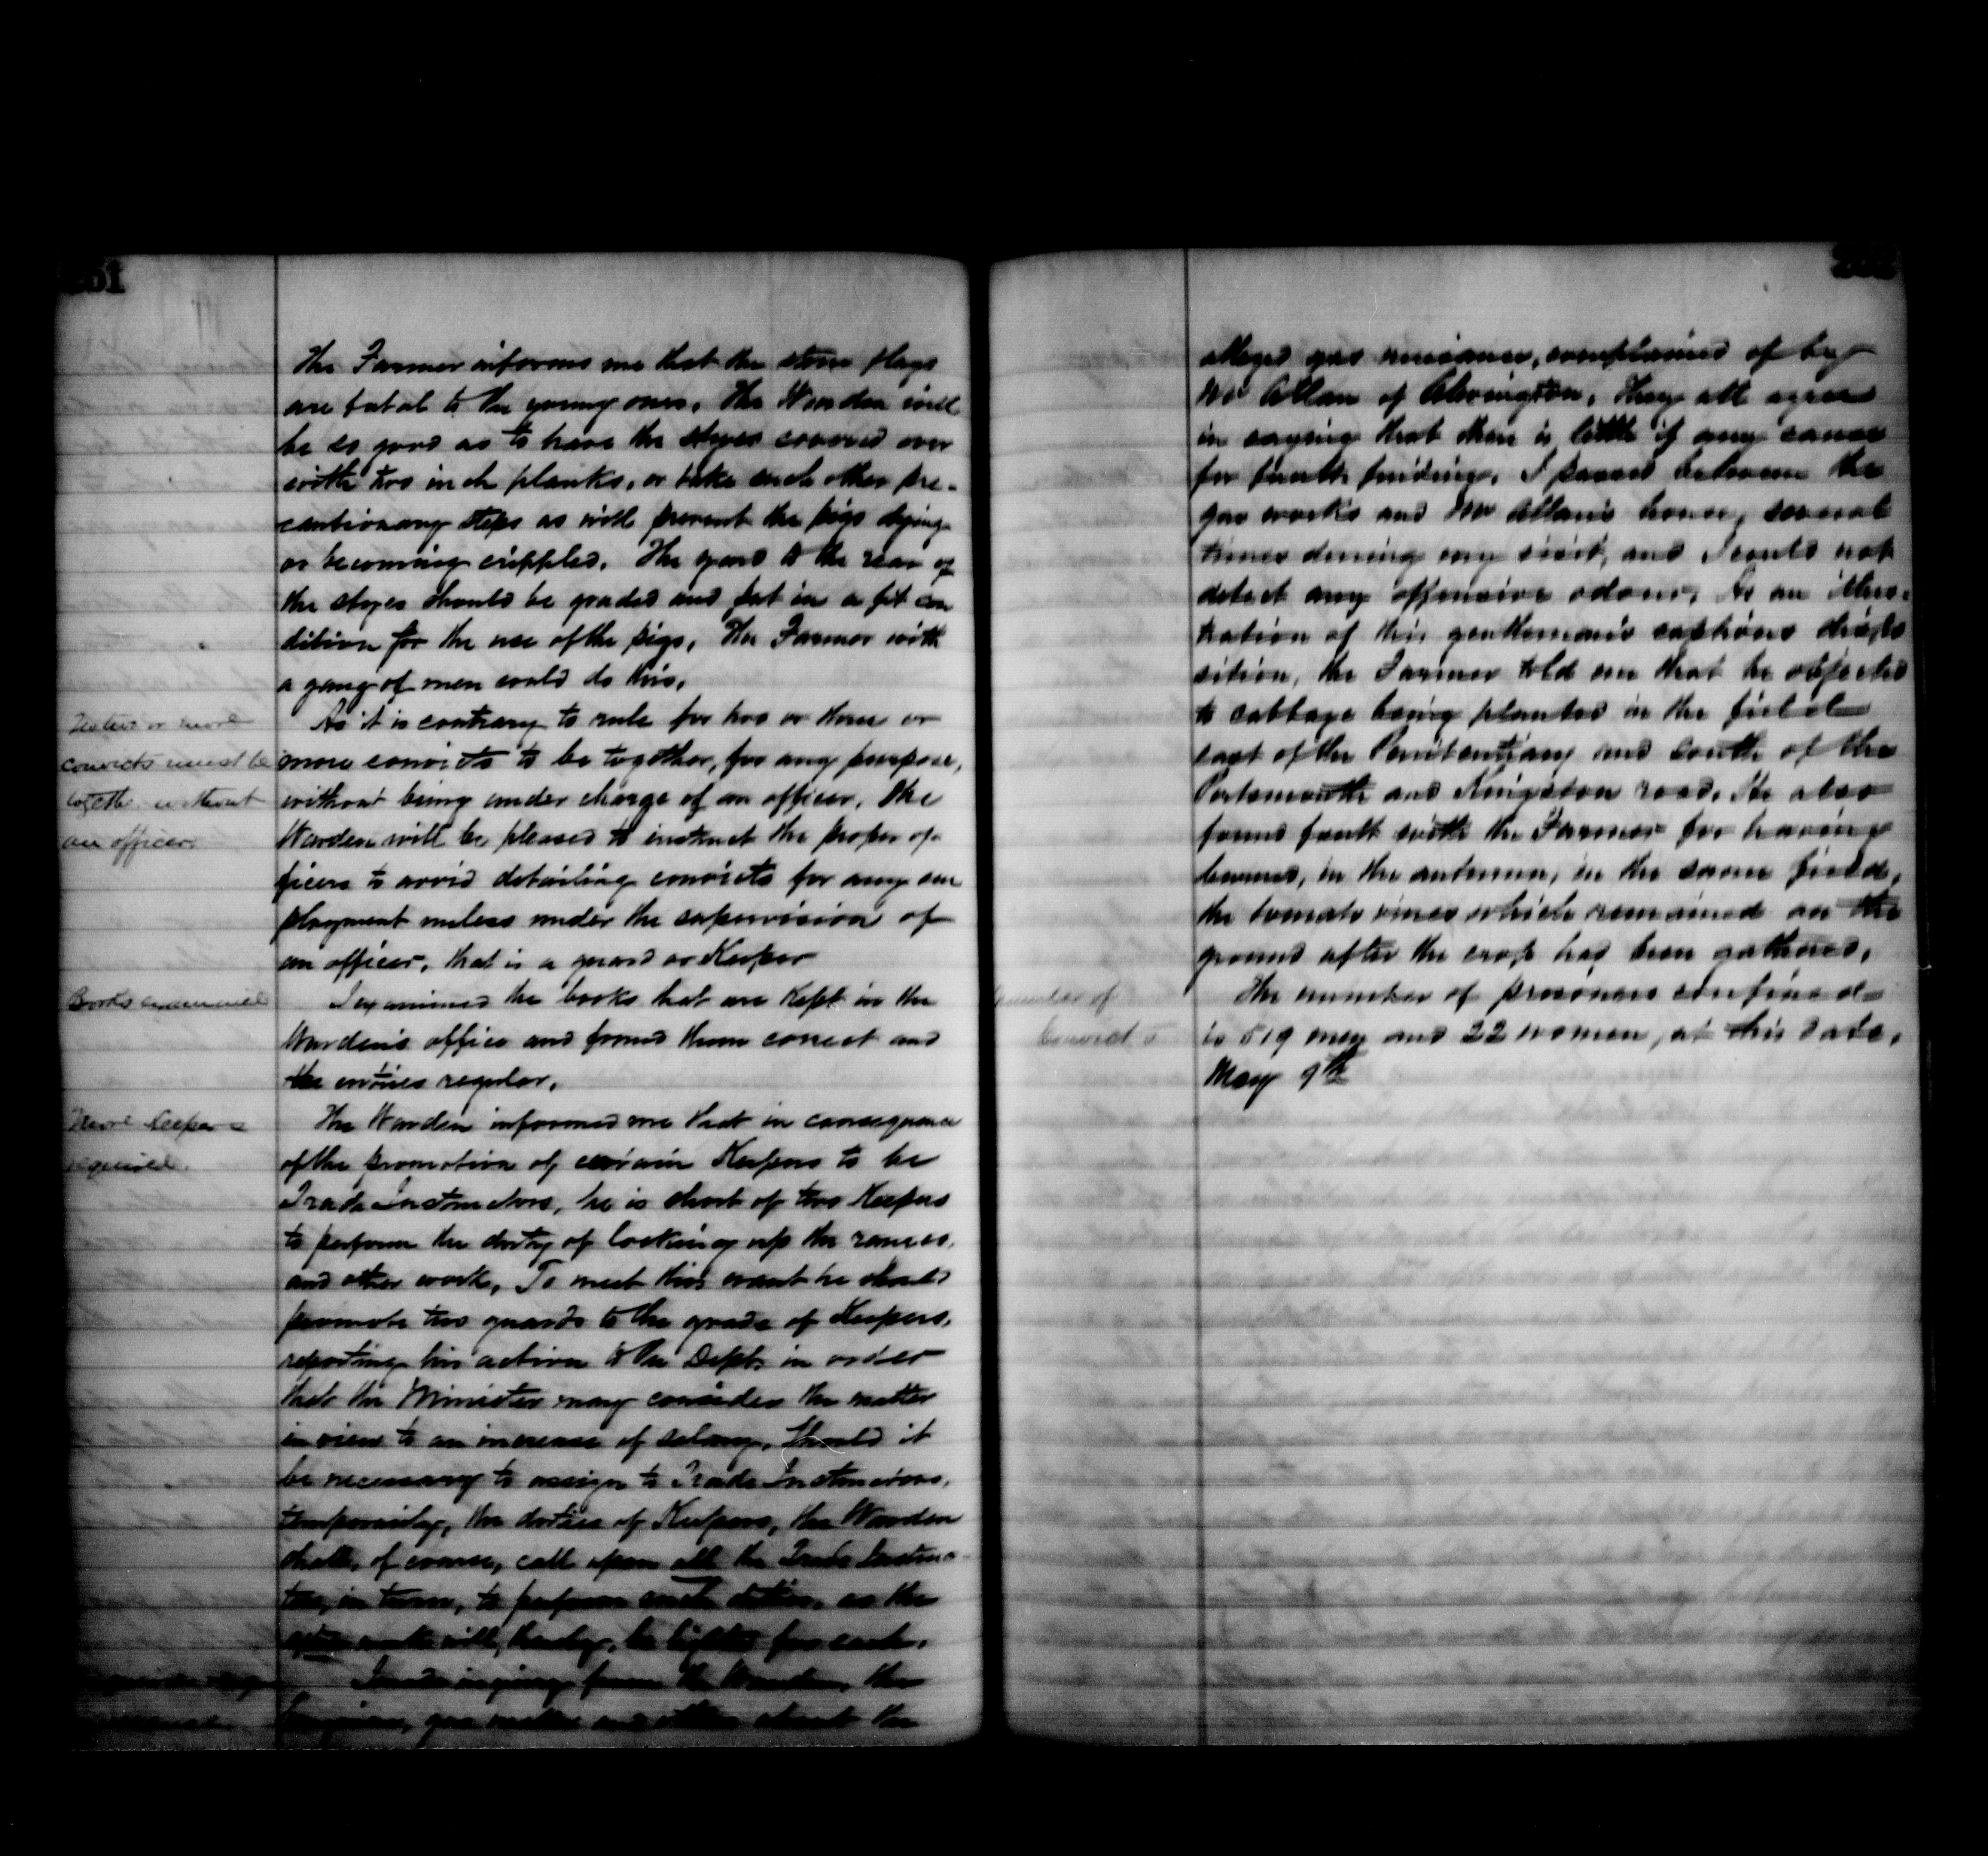 The Farmer informs me that the stone flags
are fatal to the young ones. The Warden will
be so good as to have the styes covered over
with two inch planks, or take such other pre-
cautionary steps as will prevent the pigs dying
or becoming cripples. The yard to the rear of
the styes should be graded and put in a fit con
dition for the use of the pigs. The Farmer with
a gang of men could do this.
or more
convicts must be
together without
an officer.
As it is contrary to rule for two or three or
more convicts to be together, for any purpose,
without being under charge of an officer, the
Warden will be pleased to instruct the proper of-
ficers to avoid detailing convicts for any em
ployment unless under the supervision of
an officer, that is a guard or Keeper
Books examined
I examined the books that are kept in the
Warden's office and found them correct and
the entries regular.
More Keepers
required.
The Warden informed me that in consequence
of the promotion of certain Keepers to be
Trade Instructors, he is short of two Keepers
to perform the duty of locking up the ranges,
and other work. To meet this want he should
promote two guards to the grade of Keepers,
reporting his action to the Dept. in order
that the Minister may consider the matter
in view to an increase of salary. Should it
be necessary to assign to Trade Instructors,
temporarily, the duties of Keepers, the Warden
shall, of course, call upon all the Trade Instruc-
tors, in turn, to perform such duties, as the
work will, thereby, be lighter for each.
I made inquiry from the Warden, the
and others about the
alleged gas nuisance, complained of by
Mr Allan of Alwington. They all agree
in saying that there is little if any cause
for fault finding. I passed between the
gas works and Mr Allan's house, several
times during my visit, and I could not
detect any offensive odour. As an illus-
tration of this gentleman's captious dispo
sition, the Farmer told me that he objected
to cabbage being planted in the field
east of the Penitentiary and south of the
Portsmouth and Kingston road. He also
found fault with the Farmer for having
burned, in the autumn, in the same field,
the tomato vines which remained on the
ground after the crop had been gathered.
Number of
Convicts
The number of prisoners confined
is 519 men and 22 women, at this date,
May 9th